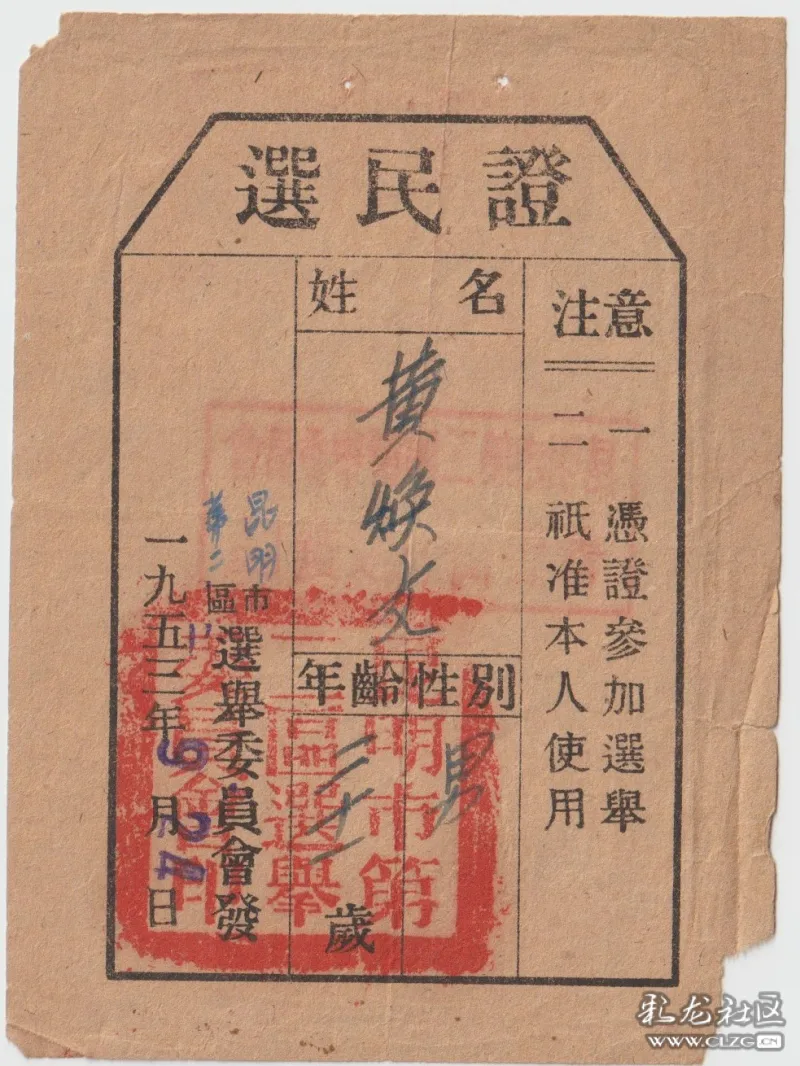 選民證
注意
一 憑證參加選舉
二 祇准本人使用
姓名
黄煥文
性別
男
年齡
歲
昆明市
第二區
選舉委員會發
一九五三年6月24日
昆明市第
二區選舉
委員會印
彩龙社区
WWW.CLZG.CN